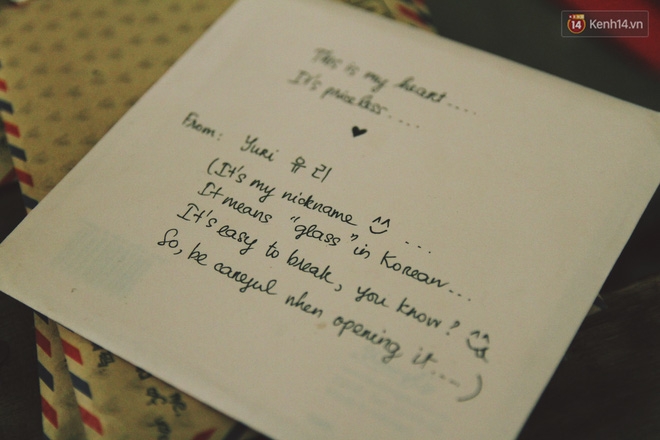 14 Kenh14.vn
This is my heart....
It's priceless....
♥
From: Yuri 유리
(It's my nickname ^^ ...
It means "glass" in Korean...
It's easy to break, you know? ^^
So, be careful when opening it....)